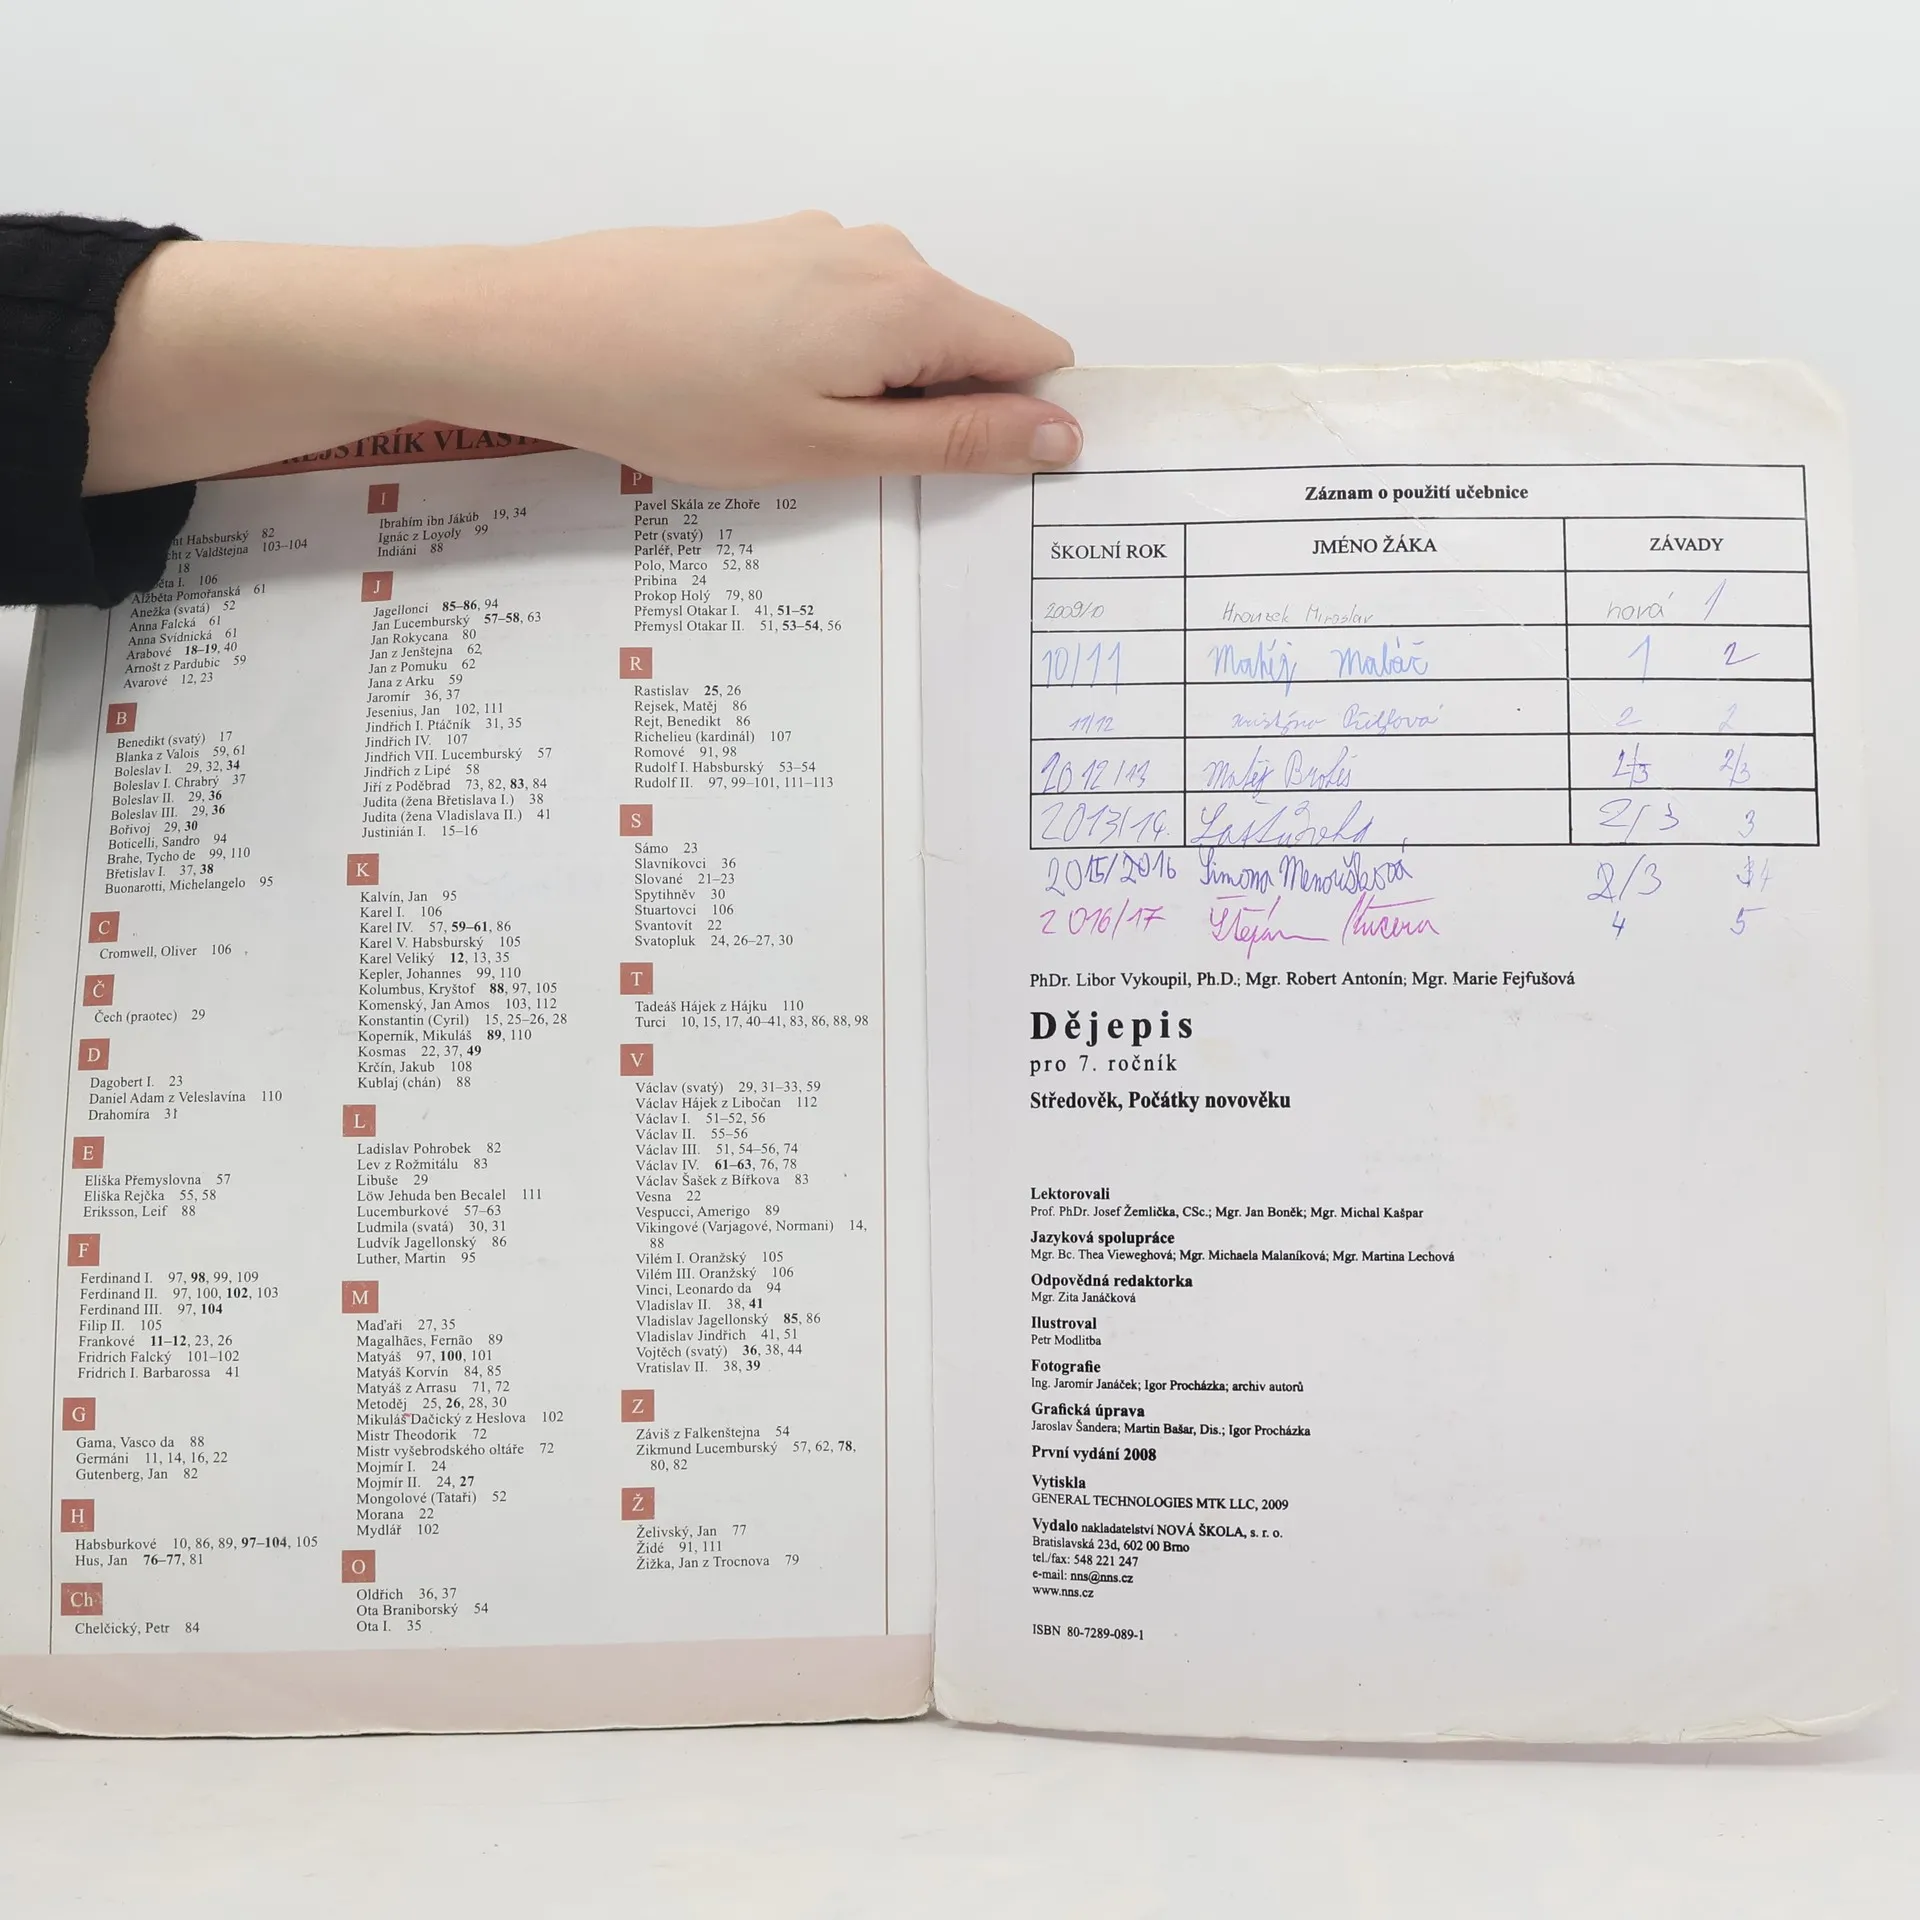 REJSTŘÍK
82
103–104
18
106
Alžběta Pomořanská 61
Anežka (svatá) 52
Anna Falcká 61
Anna Svídnická 61
Arabové 18–19, 40
Arnošt z Pardubic 59
Avarové 12, 23
B
Benedikt (svatý) 17
Blanka z Valois 59, 61
Boleslav I. 29, 32, 34
Boleslav I. Chrabrý 37
Boleslav II. 29, 36
Boleslav III. 29, 36
Bořivoj 29, 30
Boticelli, Sandro 94
Brahe, Tycho de 99, 110
Břetislav I. 37, 38
Buonarotti, Michelangelo 95
C
Cromwell, Oliver 106
Č
Čech (praotec) 29
D
Dagobert I. 23
Daniel Adam z Veleslavína 110
Drahomíra 31
E
Eliška Přemyslovna 57
Eliška Rejčka 55, 58
Eriksson, Leif 88
F
Ferdinand I. 97, 98, 99, 109
Ferdinand II. 97, 100, 102, 103
Ferdinand III. 97, 104
Filip II. 105
Frankové 11–12, 23, 26
Fridrich Falcký 101–102
Fridrich I. Barbarossa 41
G
Gama, Vasco da 88
Germáni 11, 14, 16, 22
Gutenberg, Jan 82
H
Habsburkové 10, 86, 89, 97–104, 105
Hus, Jan 76–77, 81
Ch
Chelčický, Petr 84
I
Ibrahím ibn Jákúb 19, 34
Ignác z Loyoly 99
Indiáni 88
J
Jagellonci 85–86, 94
Jan Lucemburský 57–58, 63
Jan Rokycana 80
Jan z Jenštejna 62
Jan z Pomuku 62
Jana z Arku 59
Jaromír 36, 37
Jesenius, Jan 102, 111
Jindřich I. Ptáčník 31, 35
Jindřich IV. 107
Jindřich VII. Lucemburský 57
Jindřich z Lipé 58
Jiří z Poděbrad 73, 82, 83, 84
Judita (žena Břetislava I.) 38
Judita (žena Vladislava II.) 41
Justinián I. 15–16
K
Kalvín, Jan 95
Karel I. 106
Karel IV. 57, 59–61, 86
Karel V. Habsburský 105
Karel Veliký 12, 13, 35
Kepler, Johannes 99, 110
Kolumbus, Kryštof 88, 97, 105
Komenský, Jan Amos 103, 112
Konstantin (Cyril) 15, 25–26, 28
Koperník, Mikuláš 89, 110
Kosmas 22, 37, 49
Krčín, Jakub 108
Kublaj (chán) 88
L
Ladislav Pohrobek 82
Lev z Rožmitálu 83
Libuše 29
Löw Jehuda ben Becalel 111
Lucemburkové 57–63
Ludmila (svatá) 30, 31
Ludvík Jagellonský 86
Luther, Martin 95
M
Maďaři 27, 35
Magalhães, Fernão 89
Matyáš 97, 100, 101
Matyáš Korvín 84, 85
Matyáš z Arrasu 71, 72
Metoděj 25, 26, 28, 30
Mikuláš Dačický z Heslova 102
Mistr Theodorik 72
Mistr vyšebrodského oltáře 72
Mojmír I. 24
Mojmír II. 24, 27
Mongolové (Tataři) 52
Morana 22
Mydlář 102
O
Oldřich 36, 37
Ota Braniborský 54
Ota I. 35
P
Pavel Skála ze Zhoře 102
Perun 22
Petr (svatý) 17
Parléř, Petr 72, 74
Polo, Marco 52, 88
Pribina 24
Prokop Holý 79, 80
Přemysl Otakar I. 41, 51–52
Přemysl Otakar II. 51, 53–54, 56
R
Rastislav 25, 26
Rejsek, Matěj 86
Rejt, Benedikt 86
Richelieu (kardinál) 107
Romové 91, 98
Rudolf I. Habsburský 53–54
Rudolf II. 97, 99–101, 111–113
S
Sámo 23
Slavníkovci 36
Slované 21–23
Spytihněv 30
Stuartovci 106
Svantovít 22
Svatopluk 24, 26–27, 30
T
Tadeáš Hájek z Hájku 110
Turci 10, 15, 17, 40–41, 83, 86, 88, 98
V
Václav (svatý) 29, 31–33, 59
Václav Hájek z Libočan 112
Václav I. 51–52, 56
Václav II. 55–56
Václav III. 51, 54–56, 74
Václav IV. 61–63, 76, 78
Václav Šašek z Bířkova 83
Vesna 22
Vespucci, Amerigo 89
Vikingové (Varjagové, Normani) 14,
88
Vilém I. Oranžský 105
Vilém III. Oranžský 106
Vinci, Leonardo da 94
Vladislav II. 38, 41
Vladislav Jagellonský 85, 86
Vladislav Jindřich 41, 51
Vojtěch (svatý) 36, 38, 44
Vratislav II. 38, 39
Z
Záviš z Falkenštejna 54
Zikmund Lucemburský 57, 62, 78,
80, 82
Ž
Želivský, Jan 77
Židé 91, 111
Žižka, Jan z Trocnova 79
Záznam o použití učebnice
ŠKOLNÍ ROK JMÉNO ŽÁKA ZÁVADY
2009/10 Miroslav nová 1
10/11 Matěj Malář 1 2
11/12 2 2
2012/13 Matěj Broleš 2/3 2/3
2013/14. Laštůvka 2/3 3
2015/2016 Simona Menoušková 2/3
2016/17 Štěpán Kučera 4 5
PhDr. Libor Vykoupil, Ph.D.; Mgr. Robert Antonín; Mgr. Marie Fejfušová
Dějepis
pro 7. ročník
Středověk, Počátky novověku
Lektorovali
Prof. PhDr. Josef Žemlička, CSc.; Mgr. Jan Boněk; Mgr. Michal Kašpar
Jazyková spolupráce
Mgr. Bc. Thea Vieweghová; Mgr. Michaela Malaníková; Mgr. Martina Lechová
Odpovědná redaktorka
Mgr. Zita Janáčková
Ilustroval
Petr Modlitba
Fotografie
Ing. Jaromír Janáček; Igor Procházka; archiv autorů
Grafická úprava
Jaroslav Šandera; Martin Bašar, Dis.; Igor Procházka
První vydání 2008
Vytiskla
GENERAL TECHNOLOGIES MTK LLC, 2009
Vydalo nakladatelství NOVÁ ŠKOLA, s. r. o.
Bratislavská 23d, 602 00 Brno
tel./fax: 548 221 247
e-mail: nns@nns.cz
www.nns.cz
ISBN 80-7289-089-1